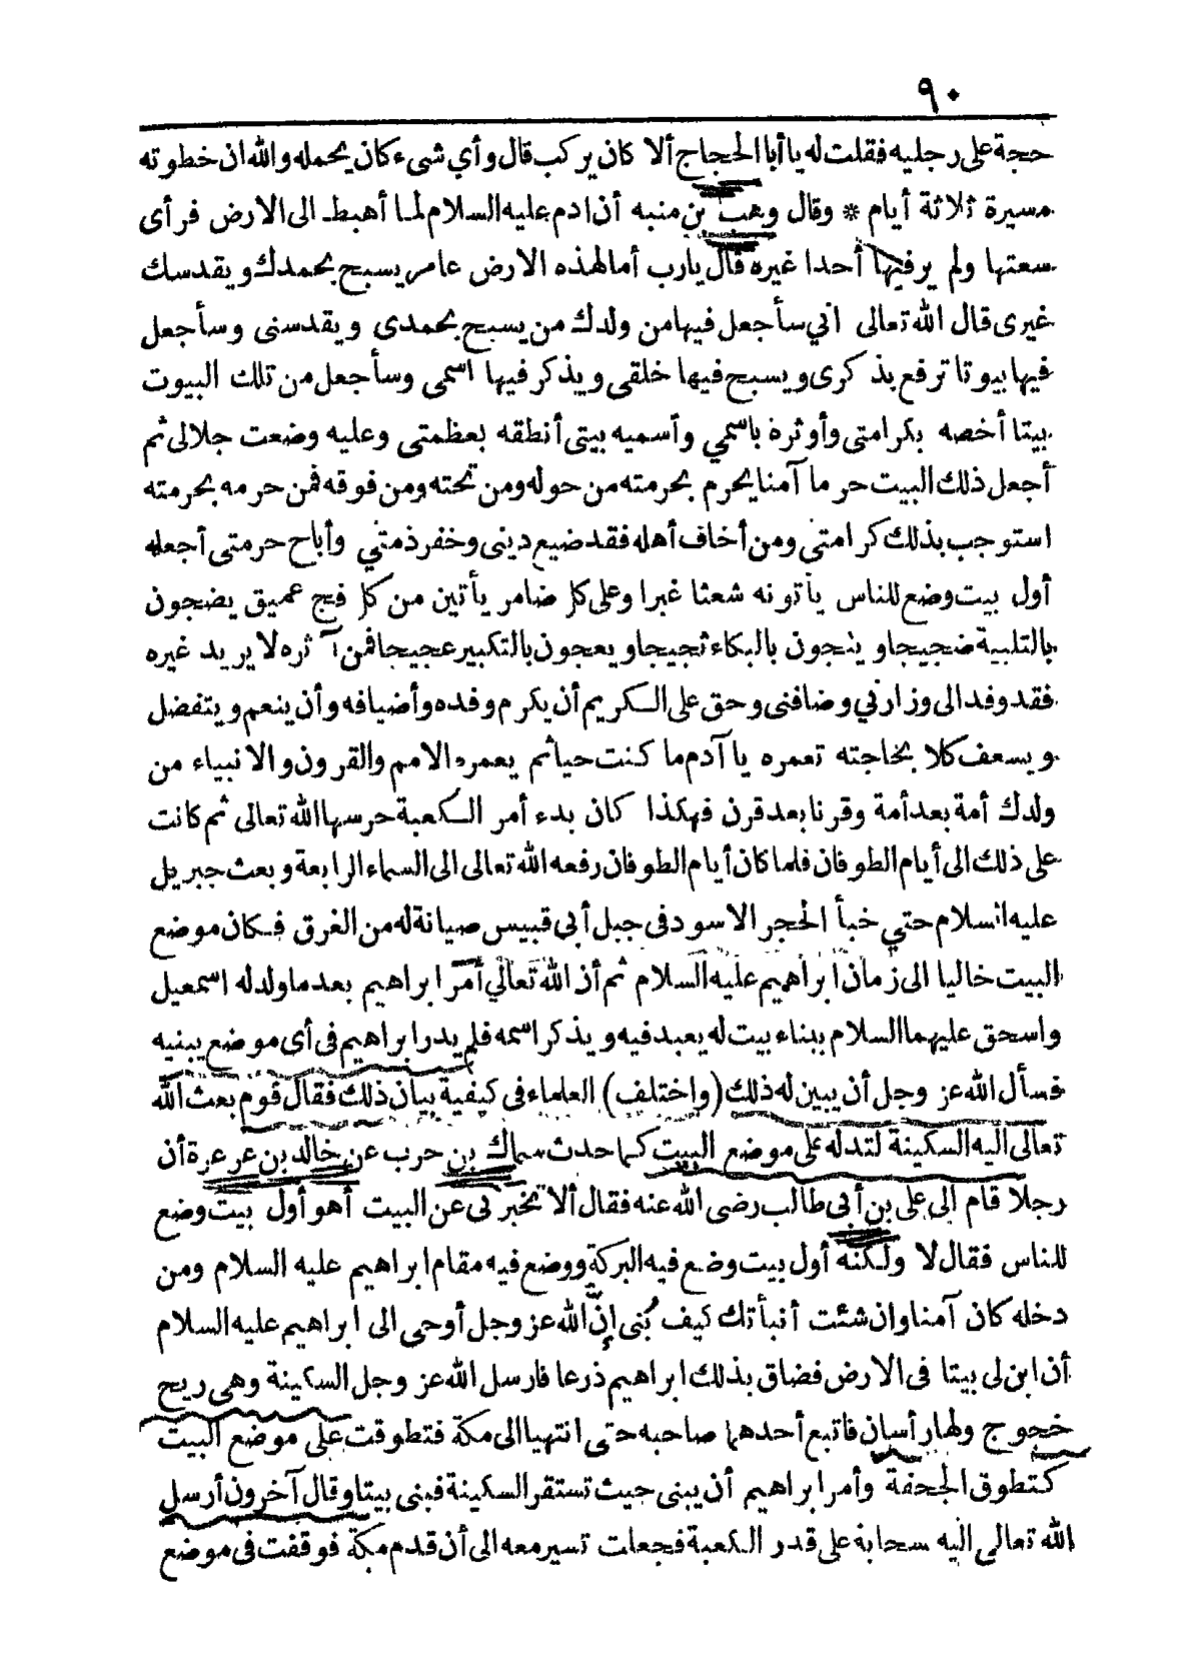 ٩٠
حجة على رجليه فقلت له يا أبا الحجاج ألا كان يركب قال وأي شيء كان يحمله والله ان خطوته
مسيرة ثلاثة أيام * وقال وهب بن منبه أن ادم عليه السلام لما أهبط الى الارض فرأى
سعتها ولم ير فيها أحدا غيره قال يارب أما لهذه الارض عامر يسبح بحمدك ويقدسك
غيرى قال الله تعالى اني سأجعل فيها من ولدك من يسبح بحمدى ويقدسنى وسأجعل
فيها بيوتا ترفع بذكرى ويسبح فيها خلقى ويذكر فيها اسمى وسأجعل من تلك البيوت
بيتا أخصه بكرامتى وأوثره باسمي وأسميه بيتى أنطقه بعظمتى وعليه وضعت جلالى ثم
أجعل ذلك البيت حرما آمنا يحرم بحرمته من حوله ومن تحته ومن فوقه فمن حرمه بحرمته
استوجب بذلك كرامتى ومن أخاف أهله فقد ضيع دينى وخفر ذمتي وأباح حرمتى أجعله
أول بيت وضع للناس يأتونه شعثا غبرا وعلى كل ضامر يأتين من كل فج عميق يضجون
بالتلبية ضجيجا ويثجون بالبكاء ثجيجا ويعجون بالتكبير عجيجا فمن آثره لا يريد غيره
فقد وفد الى وزارني وضافنى وحق على الكريم أن يكرم وفده وأضيافه وأن ينعم ويتفضل
ويسعف كلا بحاجته تعمره يا آدم ما كنت حيا ثم يعمره الامم والقرون والانبياء من
ولدك أمة بعد أمة وقرنا بعد قرن فهكذا كان بدء أمر الكعبة حرسها الله تعالى ثم كانت
على ذلك الى أيام الطوفان فلما كان أيام الطوفان رفعه الله تعالى الى السماء الرابعة وبعث جبريل
عليه السلام حتي خبأ الحجر الاسود فى جبل أبى قبيس صيانة له من الغرق فكان موضع
البيت خاليا الى زمان ابراهيم عليه السلام ثم أن الله تعالي أمر ابراهيم بعد ما ولد له اسمعيل
واسحق عليهما السلام ببناء بيت له يعبد فيه ويذكر اسمه فلم يدر ابراهيم فى أى موضع يبنيه
فسأل الله عز وجل أن يبين له ذلك (واختلف) العلماء فى كيفية بيان ذلك فقال قوم بعث الله
تعالى اليه السكينة لتدله على موضع البيت كما حدث سماك بن حرب عن خالد بن عرعرة أن
رجلا قام الى على بن أبى طالب رضى الله عنه فقال ألا تخبرنى عن البيت أهو أول بيت وضع
للناس فقال لا ولكنه أول بيت وضع فيه البركة ووضع فيه مقام ابراهيم عليه السلام ومن
دخله كان آمنا وان شئت أنبأتك كيف بُنى إنّ الله عز وجل أوحى الى ابراهيم عليه السلام
أن ابن لى بيتا فى الارض فضاق بذلك ابراهيم ذرعا فارسل الله عز وجل السكينة وهى ريح
خجوج ولها رأسان فاتبع أحدهما صاحبه حتى انتهيا الى مكة فتطوقت على موضع البيت
كتطوق الجحفة وأمر ابراهيم أن يبنى حيث تستقر السكينة فبنى بيتا وقال آخرون أرسل
الله تعالى اليه سحابة على قدر الكعبة فجعلت تسير معه الى أن قدم مكة فوقفت فى موضع